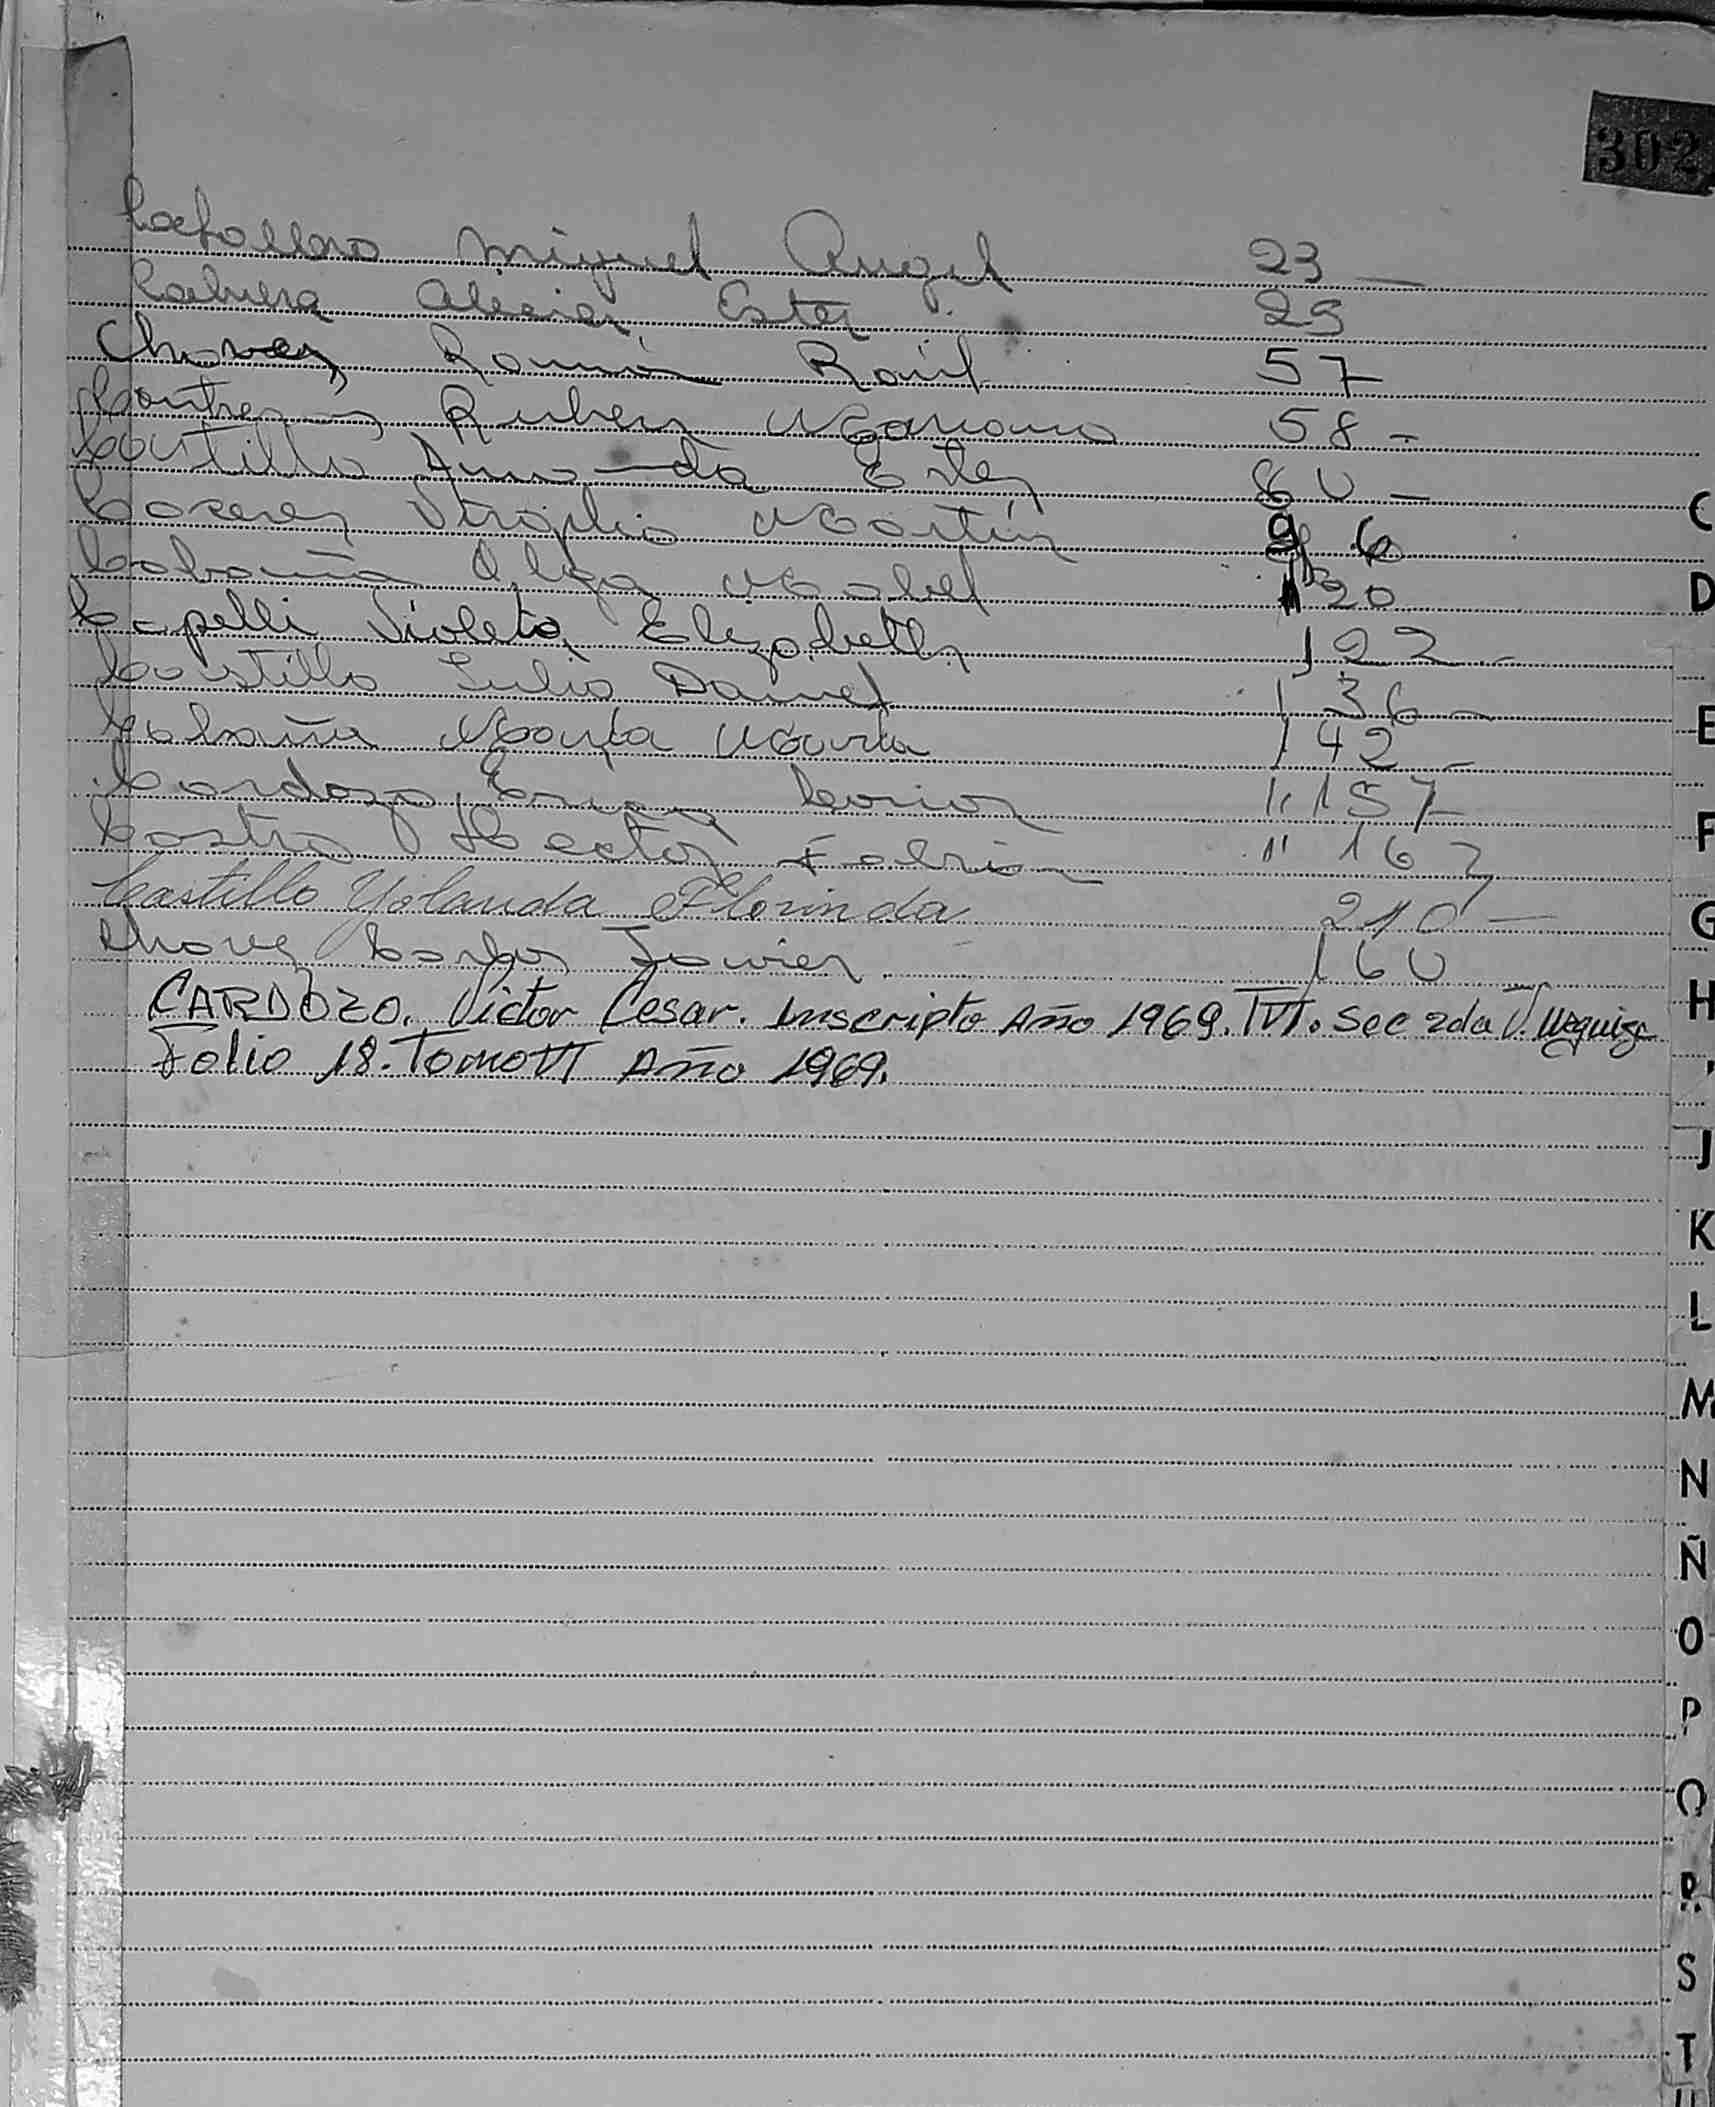 302
Caballero Miguel Angel 23 —
Cabrera Alicia Ester 29
Chavez Ramón Raúl 57
Contreras Ruben Mariano 58 -
Castillo Amanda Ester 80 -
Caceres Virgilio Martín 96
Cabaña Olga Mabel 120
Capelli Violeta Elizabeth 122 -
Castillo Julio Daniel 136 -
Cabaña Marta María 142 -
Cardozo 157 -
Castro Hector Fabrian 167
Castillo Yolanda Florinda 210 —
Chavez Carlos Javier 160
CARDOZO. Victor Cesar. Inscripto Año 1969. TVI. Sec 2da V. Urquiza
Folio 18. Tomo VI Año 1969.
C
D
E
F
G
H
J
K
L
M
N
Ñ
O
P
Q
R
S
T